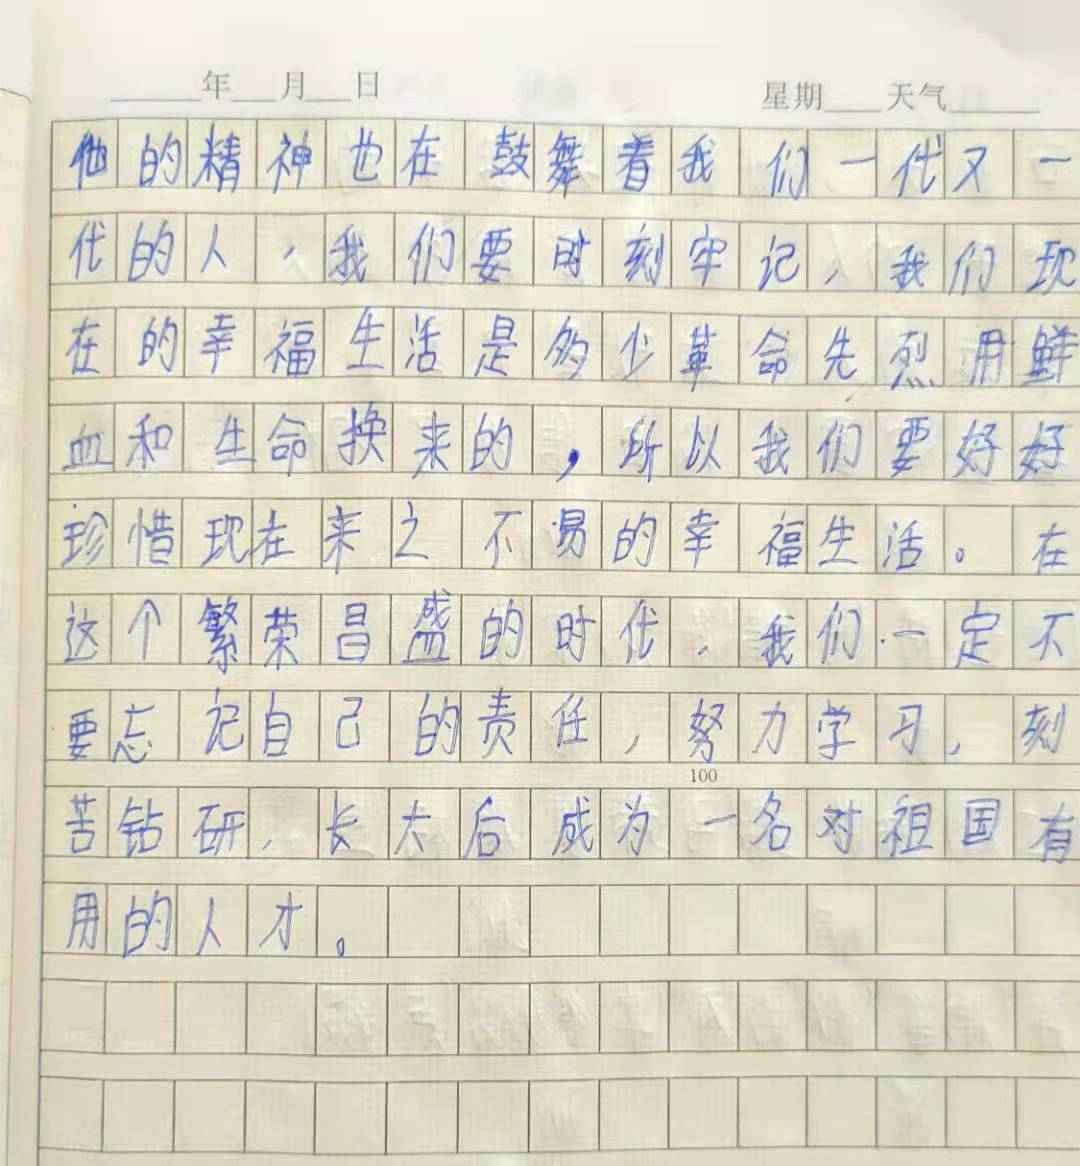 年 月 日 星期 天气
他的精神也在鼓舞着我们一代又一
代的人,我们要时刻牢记,我们现
在的幸福生活是多少革命先烈用鲜
血和生命换来的,所以我们要好好
珍惜现在来之不易的幸福生活。在
这个繁荣昌盛的时代,我们一定不
要忘记自己的责任,努力学习,刻
100
苦钻研,长大后成为一名对祖国有
用的人才。